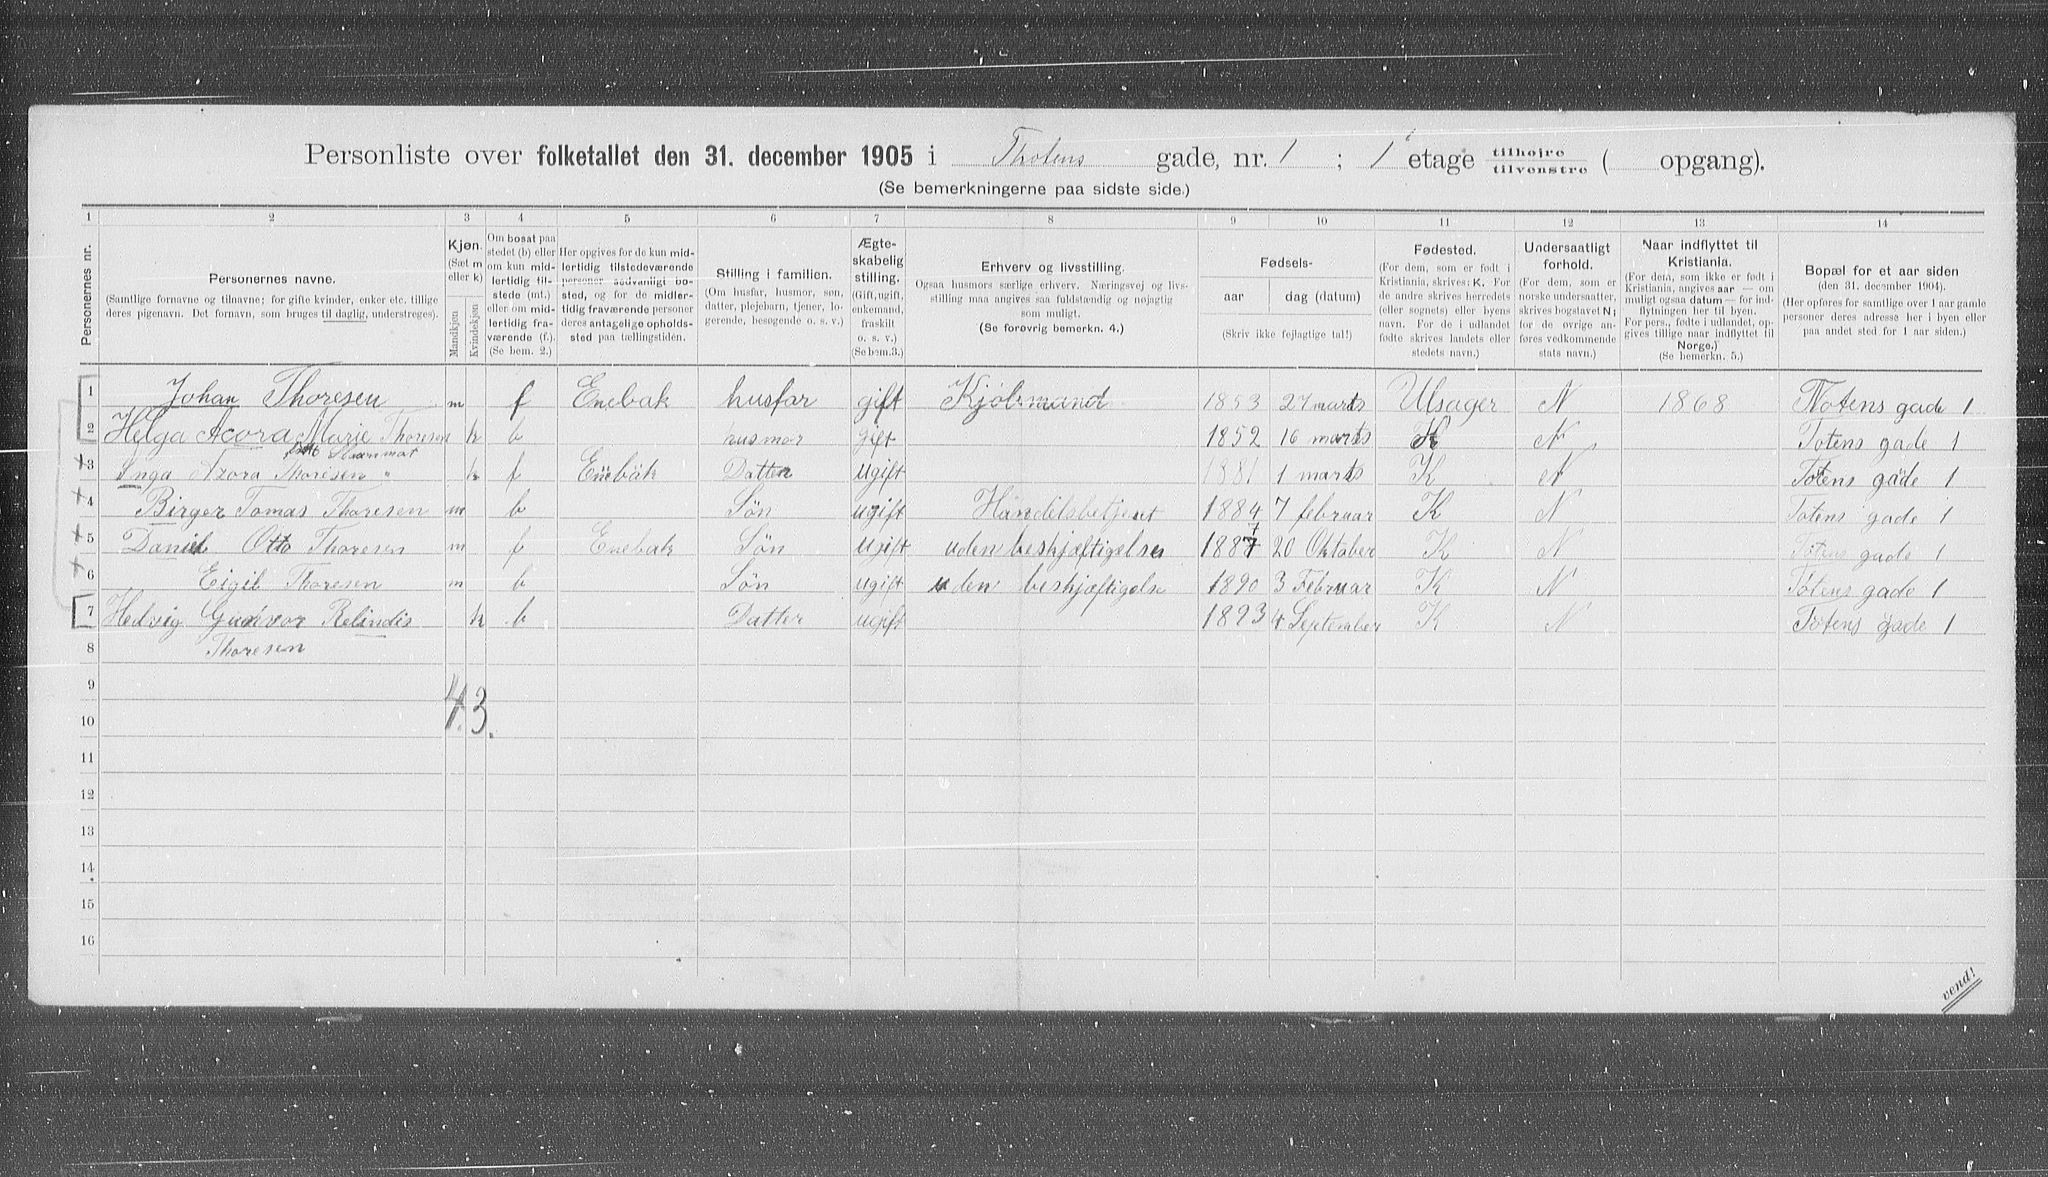 Personliste over folketallet den 31. december 1905 i Thotens gade, nr. 1 ; 1 etage tilhøjre tilvenstre ( opgang).
(Se bemerkningerne paa sidste side.)
1 2 3 4 5 6 7 8 9 10 11 12 13 14
Personernes nr.
Personernes navne.
(Samtlige fornavne og tilnavne; for gifte kvinder, enker etc. tillige
deres pigenavn. Det fornavn, som bruges til daglig, understreges).
Kjøn.
(Sæt m
eller k)
Mandkjøn
Kvindekjøn
Om bosat paa
stedet (b) eller
om kun mid-
lertidig til-
stede (mt.)
eller om mid-
lertidig fra-
værende (f.).
(Se bem. 2.)
Her opgives for de kun mid-
lertidig tilstedeværende
personer sedvanligt bo-
sted, og for de midler-
tidig fraværende personer
deres antagelige opholds-
sted paa tællingstiden.
Stilling i familien.
(Om husfar, husmor, søn,
datter, plejebarn, tjener, lo-
gerende, besøgende o. s. v.)
Ægte-
skabelig
stilling.
(Gift, ugift,
enkemand,
fraskilt
o. s. v.)
(Se bem. 3.)
Erhverv og livsstilling.
Ogsaa husmors særlige erhverv. Næringsvej og livs-
stilling maa angives saa fuldstændig og nøjagtig
som muligt.
(Se forøvrig bemerkn. 4.)
Fødsels-
aar dag (datum)
(Skriv ikke fejlagtige tal!)
Fødested.
(For dem, som er født i
Kristiania, skrives: K. For
de andre skrives herredets
(eller sognets) eller byens
navn. For de i udlandet
fødte skrives landets eller
stedets navn.)
Undersaatligt
forhold.
(For dem, som er
norske undersaatter,
skrives bogstavet N;
for de øvrige an-
føres vedkommende
stats navn.)
Naar indflyttet til
Kristiania.
(For dem, som ikke er født i
Kristiania, angives aar — om
muligt ogsaa datum — for ind-
flytningen her til byen.
For pers., fødte i udlandet, op-
gives tillige naar indflyttet til
Norge.)
(Se bemerkn. 5.)
Bopæl for et aar siden
(den 31. december 1904).
(Her opføres for samtlige over 1 aar gamle
personer deres adresse her i byen eller
paa andet sted for 1 aar siden.)
1 Johan Thoresen m f Enebak husfar gift Kjølsmand 1853 27 marts Ulsager N 1868 Totens gade 1
2 Helga Acora Marie Thoresen k b husmor gift 1852 16 marts K N Totens gade 1
3 Inga Azora Thoresen " k f Enebak Datter ugift 1881 1 marts K N Totens gade 1
4 Birger Tomas Thoresen m b Søn ugift Handelsbetjent 1884 7 februar K N Totens gade 1
5 Daniel Otto Thoresen m f Enebak Søn ugift uden beskjæftigelse 1887 7 20 Oktober K N Totens gade 1
6 Eigil Thoresen m b Søn ugift uden beskjæftigelse 1890 3 Februar K N Totens gade 1
7 Hedvig Gudvor Relindis k b Datter ugift 1893 4 September K N Totens gade 1
8 Thoresen
9
4. 3.
10
11
12
13
14
15
16
vend!